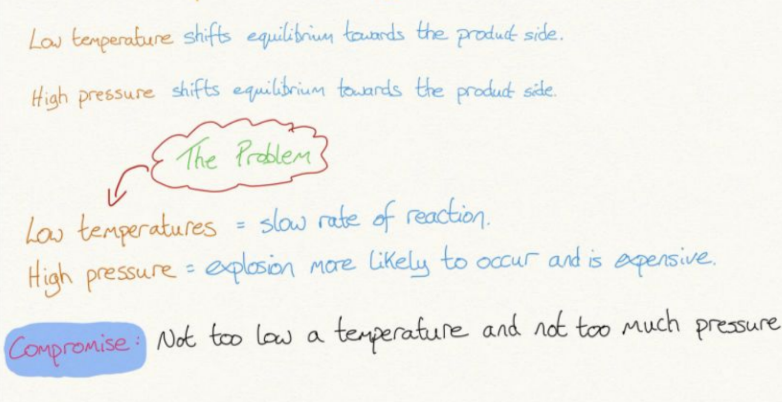 Low temperature shifts equilibrium towards the product side.
High pressure shifts equilibrium towards the product side.
The Problem
Low temperatures = slow rate of reaction.
High pressure = explosion more likely to occur and is expensive.
Compromise: Not too low a temperature and not too much pressure